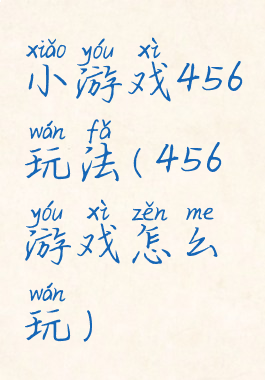 xiǎo yóu xì
小游戏456
wán fǎ
玩法(456
yóu xì zěn me
游戏怎么
wán
玩)